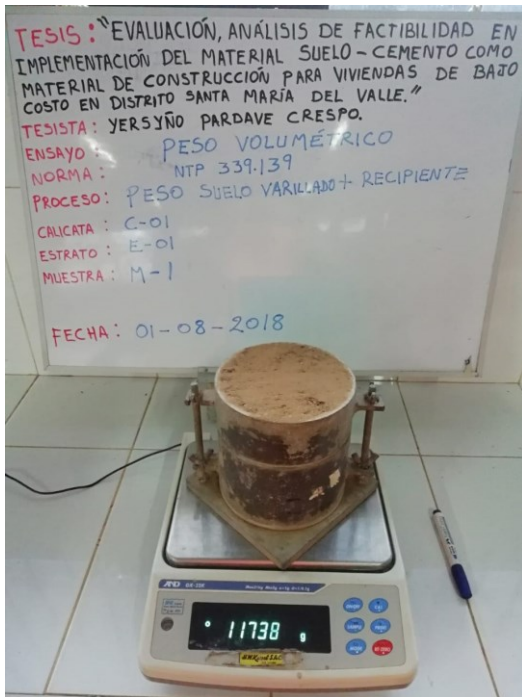 TESIS: "EVALUACIÓN, ANÁLISIS DE FACTIBILIDAD EN
IMPLEMENTACIÓN DEL MATERIAL SUELO-CEMENTO COMO
MATERIAL DE CONSTRUCCIÓN PARA VIVIENDAS DE BAJO
COSTO EN DISTRITO SANTA MARÍA DEL VALLE."
TESISTA: YERSYÑO PARDAVE CRESPO.
ENSAYO: PESO VOLUMÉTRICO
NORMA: NTP 339.139
PROCESO: PESO SUELO VARILLADO + RECIPIENTE
CALICATA: C-01
ESTRATO: E-01
MUESTRA: M-1
FECHA: 01-08-2018
AND
11738 g